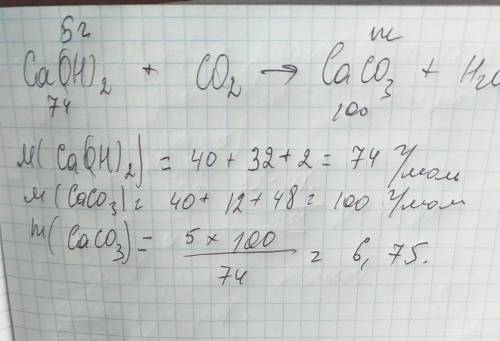 5г m
Ca(OH)₂ + CO₂ → CaCO₃ + H₂O
74 100
M(Ca(OH)₂) = 40 + 32 + 2 = 74 г/мол
M(CaCO₃) = 40 + 12 + 48 = 100 г/мол
m(CaCO₃) = 5 × 100 / 74 = 6,75.